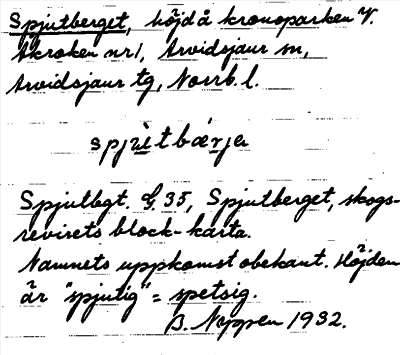 Spjutberget, höjd å kronoparken V.
Akroken nr 1, Arvidsjaur sn,
Arvidsjaur tg, Norrb. l.
spjùtbærje
Spjutbgt. G. 35, Spjutberget, skogs-
revirets block-karta.
Namnets uppkomst obekant. Höjden
är "spjutig" = spetsig.
B. Nyppen 1932.